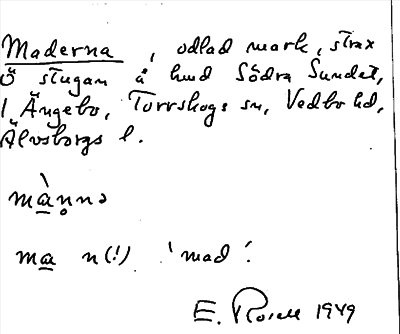 Maderna, odlad mark, strax
ö stugan å lmd Södra Sundet,
1 Ängebo, Torrskogs sn, Vedbo hd,
Älvsborgs l.
mànnə
ma n(!) 'mad'.
E. Rosell 1949